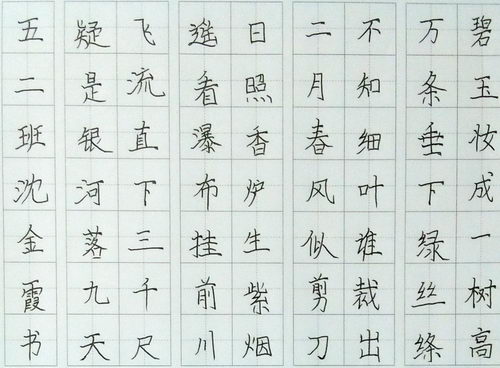 碧玉妆成一树高
万条垂下绿丝绦
不知细叶谁裁出
二月春风似剪刀
日照香炉生紫烟
遥看瀑布挂前川
飞流直下三千尺
疑是银河落九天
五二班沈金霞书